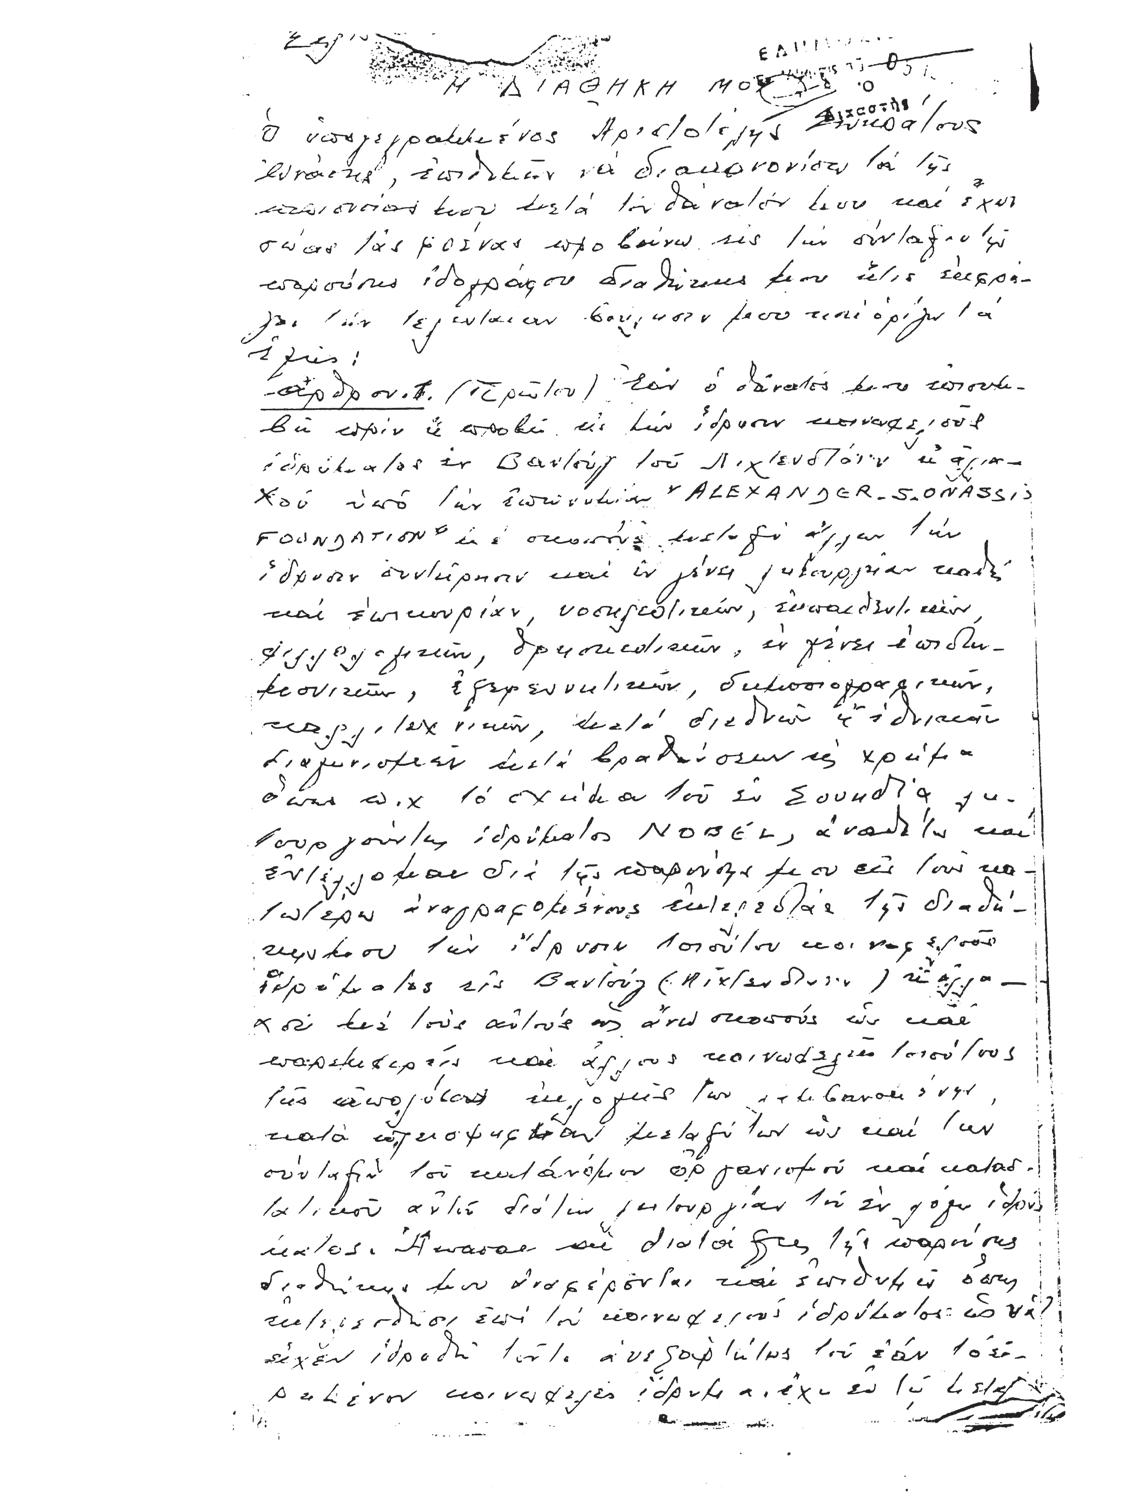 Η ΔΙΑΘΗΚΗ ΜΟΥ
Ὁ ὑπογεγραμμένος Ἀριστοτέλης Σωκράτους
Ὠνάσης, ἐπιθυμῶν νά διακανονίσω τά τῆς
περιουσίας μου μετά τόν θάνατόν μου καί ἔχων
σώας τάς φρένας προβαίνω εἰς τήν σύνταξιν τῆς
παρούσης ἰδιογράφου διαθήκης μου ἥτις ἐκφρά-
ζει τήν τελευταίαν βούλησιν μου καί ὁρίζω τά
ἑξῆς:
Ἄρθρον 1. (Πρῶτον) Ἐάν ὁ θάνατός μου ἐπισυμ-
βῆ πρίν ἤ προβῶ εἰς τήν ἵδρυσιν κοινωφελοῦς
ἱδρύματος ἐν Βαντούζ τοῦ Λιχτενστάϊν ἤ ἀλλα-
χοῦ ὑπό τήν ἐπωνυμίαν "ALEXANDER-S-ONASSIS
FOUNDATION" μέ σκοπούς μεταξύ ἄλλων τήν
ἵδρυσιν συντήρησιν καί ἐν γένει λειτουργίαν καθώς
καί ἐπικουρίαν, νοσηλευτικῶν, ἐκπαιδευτικῶν,
φιλολογικῶν, θρησκευτικῶν, ἐν γένει ἐπιστη-
μονικῶν, ἐξερευνητικῶν, δημοσιογραφικῶν,
καλλιτεχνικῶν, μετά διεθνῶν ἤ ἐθνικῶν
διαγωνισμῶν μετά βραβεύσεων εἰς χρῆμα
ὅπως π.χ τό σχῆμα τοῦ ἐν Σουηδία λει-
τουργοῦντος ἱδρύματος NOBEL, ἀναθέτω καί
ἐντέλλομαι διά τῆς παρούσης μου εἰς τούς κα-
τωτέρω ἀναγραφομένους ἐκτελεστάς τῆς διαθή-
κης μου τήν ἵδρυσιν τοιούτου κοινωφελοῦς
ἱδρύματος εἰς Βαντούζ (Λιχτενστάϊν) ἤ ἀλλα-
χοῦ μέ τούς αὐτούς ὡς ἄνω σκοπούς ὡς καί
παρεμφερεῖς καί ἄλλους κοινωφελεῖς τοιούτους
τῆς ἀπολύτου ἐκλογῆς των
κατά πλειοψηφίαν μεταξύ των ὡς καί τήν
σύνταξιν τοῦ κατά νόμον ὀργανισμοῦ καί κατασ-
τατικοῦ αὐτοῦ διά τήν λειτουργίαν τοῦ ἐν λόγω ἱδρύ-
ματος. Ἅπασαι αἱ διατάξεις τῆς παρούσης
διαθήκης μου ἀναφέρονται καί ἐπιθυμῶ ὅπως
ἐκτελεσθῶσι ἐπί τοῦ κοινωφελοῦς ἱδρύματος ὡς νά
εἶχεν ἱδρυθῆ τοῦτο ἀνεξαρτήτως τοῦ ἐάν τό εἰ-
ρημένον κοινωφελές ἵδρυμα ἔχη ἐν τῷ μεταξύ